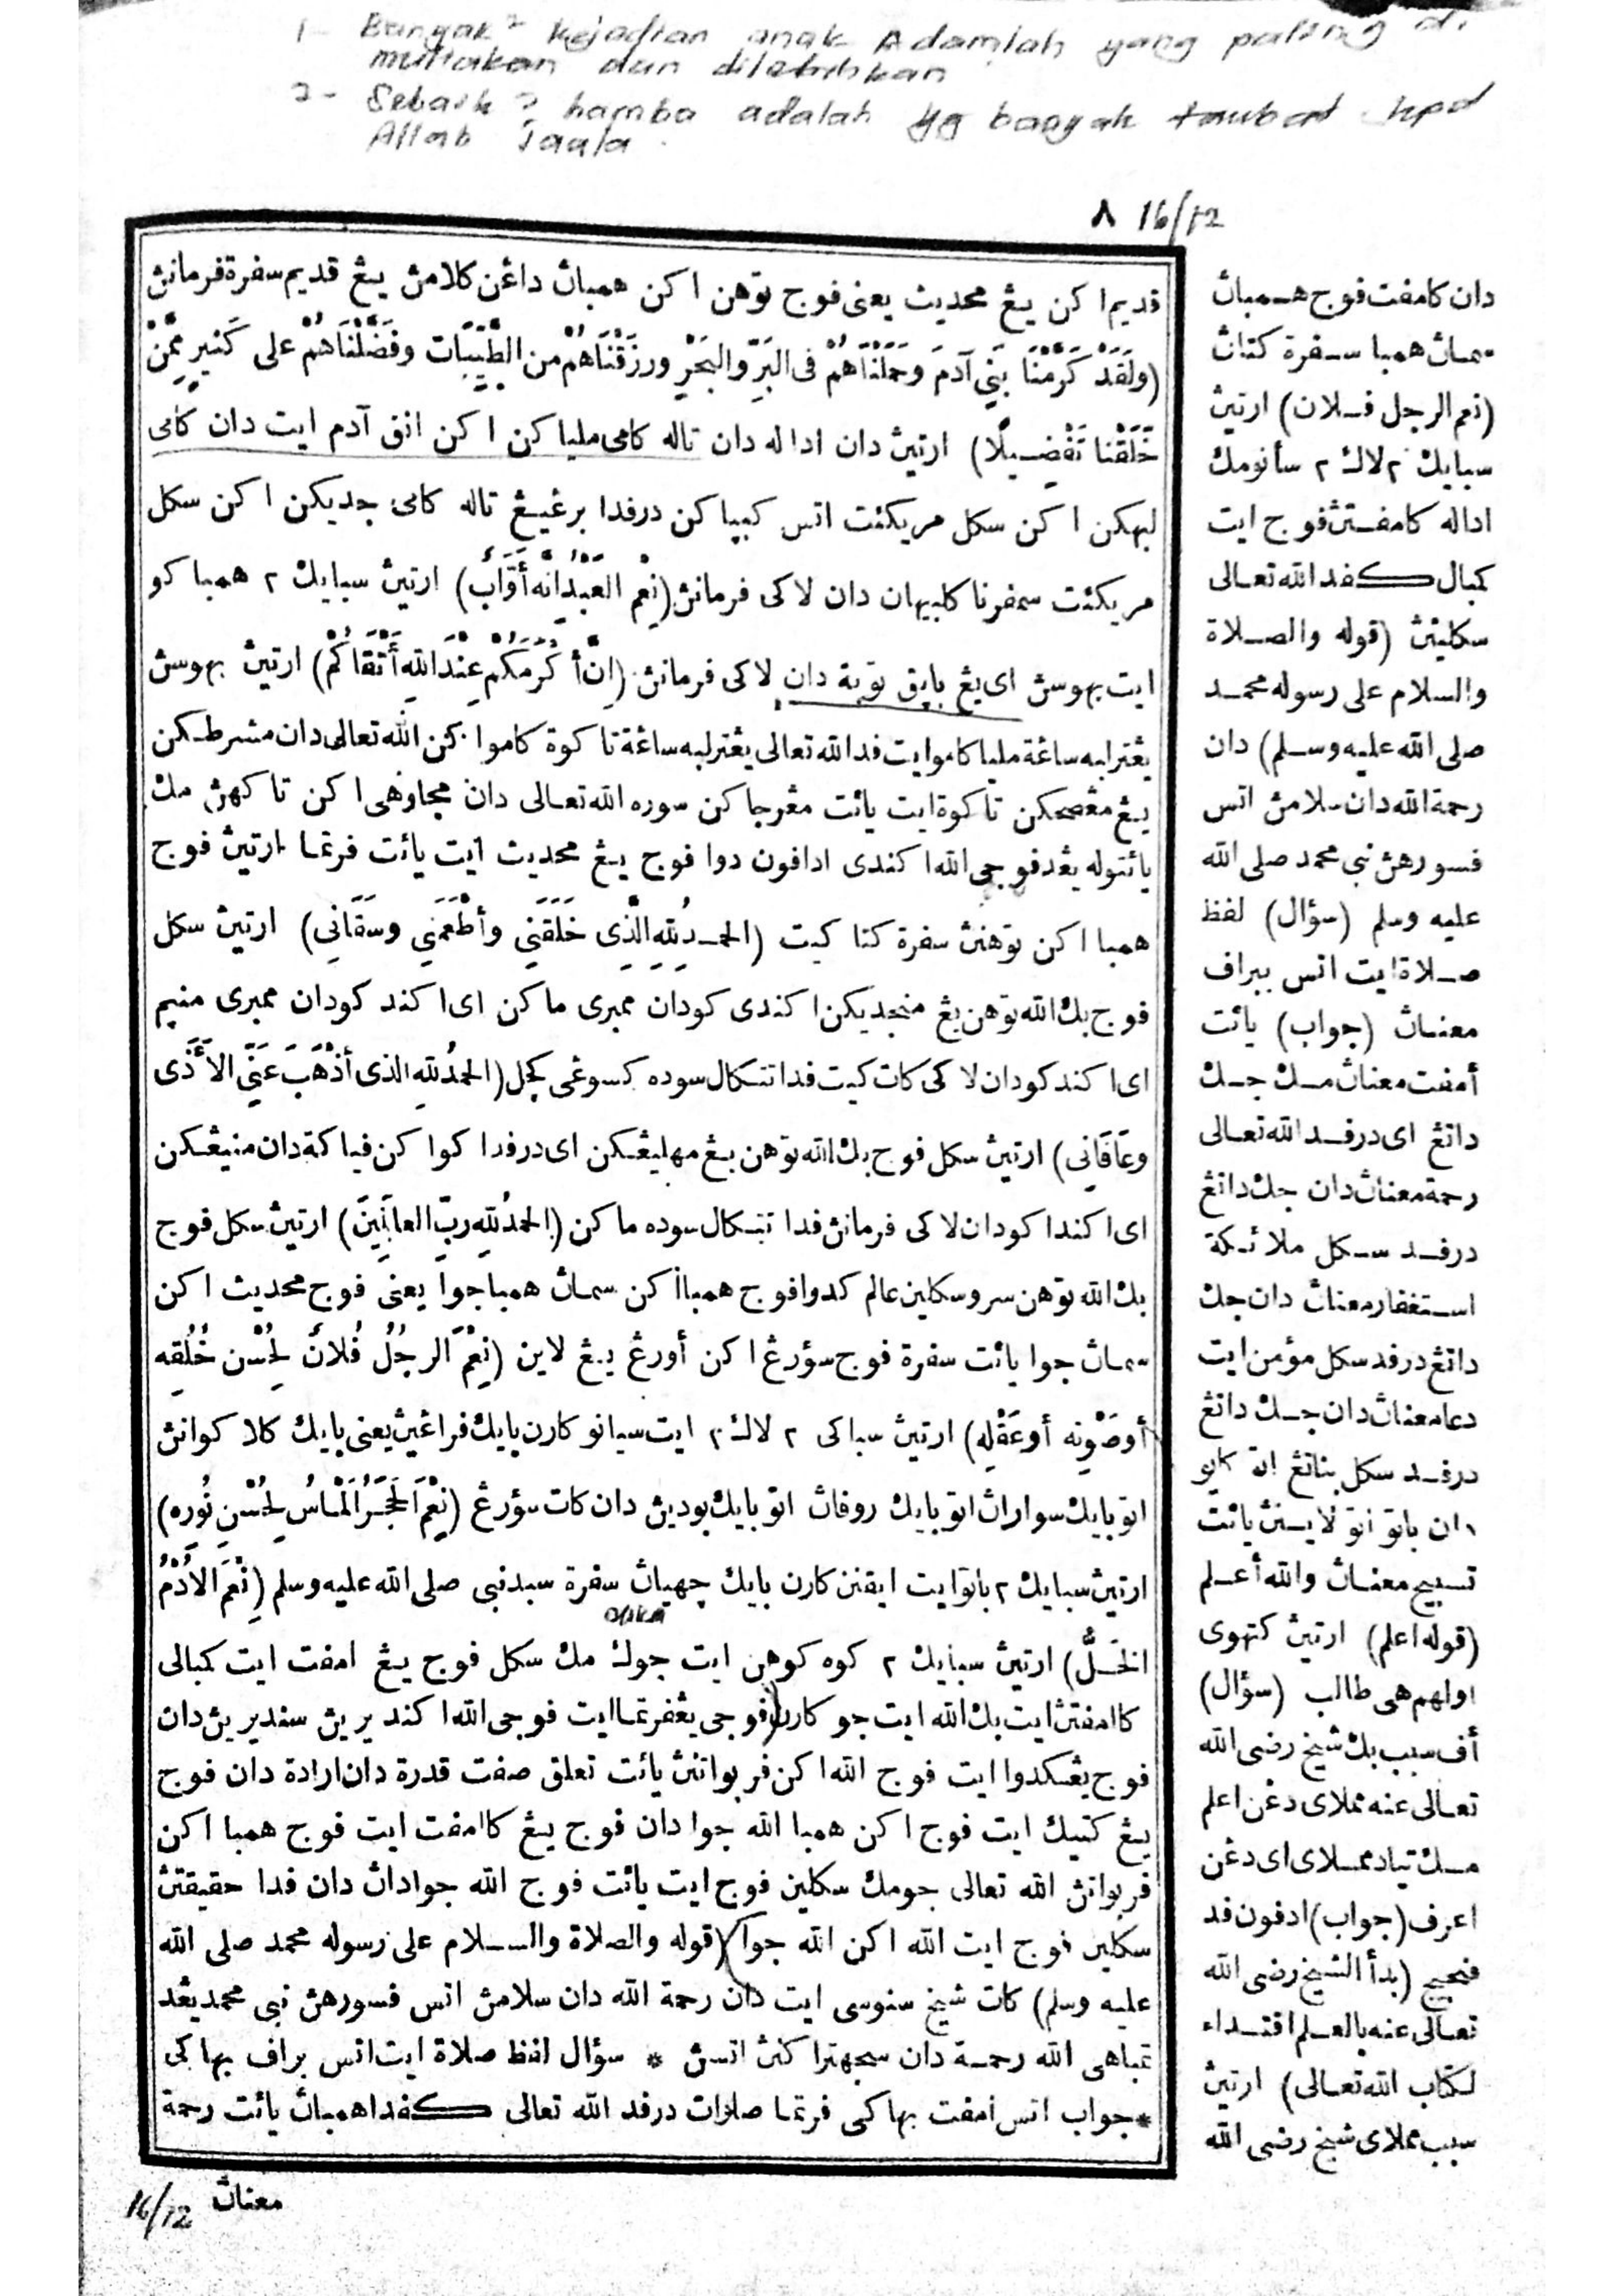 1- Banyak² kejadian anak Adamlah yang paling di
muliakan dan dilebihkan
2- Sebaik² hamba adalah yg banyak taubat kpd
Allah Taala.
٨ 16/12
قديم اكن يڠ محديث يعني فوج توهن اكن همباث داغن كلامڽ يڠ قديم سفرة فرمانڽ
(ولَقَدْ كَرَّمْنَا بَنِي آدمَ وَحَمَلْنَاهُمْ فى البَرِّ والبَحْرِ ورزَقْنَاهُمْ من الطَّيِّبَات وفَضَّلْنَاهُمْ على كَثيرٍ مِمَّنْ
خَلَقْنا تَفْضِيلًا) ارتيڽ دان اداله دان تاله كامى مليا كن اكن انق آدم ايت دان كامى
لبهكن اكن سكل مريكئت اتس كبيا كن درفدا برغيڠ تاله كامى جديكن اكن سكل
مريكئت سمفرنا كلبيهان دان لاكى فرمانڽ (نِعْم العَبْدُ إنَّه أَوَّابٌ) ارتيڽ سبايك ٢ همبا كو
ايت بهوسڽ اى يڠ بايق توبة دان لاكى فرمانڽ (إنَّ أَكْرَمَكُمْ عِنْدَ اللهِ أَتْقَاكُمْ) ارتيڽ بهوسڽ
يڠترلبه ساڠة مليا كامو ايت فد الله تعالى يڠترلبه ساڠة تاكوة كاموا كن الله تعالى دان مشرطكن
يڠ مڠصحكن تاكوة ايت يائت مڠرجاكن سوره الله تعالى دان مجاوهى اكن تاكهڽ مك
يائتوله يڠد فوجى الله اكندى ادافون دوا فوج يڠ محديث ايت يائت فرتما ارتيڽ فوج
همبا اكن توهنڽ سفرة كتا كيت (الحمدُ للهِ الَّذِى خَلَقَنِي وأطْعَمَنِي وسَقَانِي) ارتيڽ سكل
فوج بك الله توهن يڠ منجديكن اكندى كودان ممبرى ماكن اى اكند كودان ممبرى منيم
اى اكند كودان لاكى كات كيت فدا تتكال سوده كسوڠى كچل (الحمدُ للهِ الذى أذْهَبَ عَنِّي الأَذَى
وعَافَانِي) ارتيڽ سكل فوج بك الله توهن يڠ مهليڠكن اى درفدا كوا كن فياكة دان منيڠكن
اى اكندا كودان لاكى فرمانڽ فدا تتكال سوده ماكن (الحمدُ للهِ ربِّ العالَمِينَ) ارتيڽ سكل فوج
بك الله توهن سروسكلين عالم كدوا فوج همبا اكن سماڽ همبا جوا يعنى فوج محديث اكن
سماڽ جوا يائت سفرة فوج سؤرغ اكن أورڠ يڠ لاين (نِعْمَ الرجُلُ فُلانٌ لِحُسْنِ خُلُقِه
أوصَوْتِه أوعَقْلِه) ارتيڽ سباكى ٢ لاك ٢ ايت سيانو كارن بايك فراڠيڽ يعنى بايك كلاكوانڽ
اتو بايك سواراڽ اتو بايك روفاڽ اتو بايك بوديڽ دان كات سؤرڠ (نِعْمَ الحَجَرُ الْمَاسُ لِحُسْنِ نُورِه)
ارتيڽ سبايك ٢ باتو ايت ايقنن كارن بايك چهياڽ سفرة سبد نبى صلى الله عليه وسلم (نِعْمَ الأُدْمُ
الخَلُّ) ارتيڽ سبايك ٢ كوه كوهن ايت جوك مك سكل فوج يڠ امفت ايت كمبالى
كاامفتڽ ايت بك الله ايت جو كارن (فوجى يڠفرتما ايت فوجى الله اكند يريڽ سنديريڽ دان
فوج يڠكدوا ايت فوج الله اكن فربواتنڽ يائت تعلق صفت قدرة دان ارادة دان فوج
يڠ كتيك ايت فوج اكن همبا الله جوا دان فوج يڠ كاامفت ايت فوج همبا اكن
فربواتڽ الله تعالى جومك سكلين فوج ايت يائت فوج الله جواداڽ دان فدا حقيقتڽ
سكلين فوج ايت الله اكن الله جوا (قوله والصلاة والسلام على رسوله محمد صلى الله
عليه وسلم) كات شيخ سنوسى ايت دان رحمة الله دان سلامڽ اتس فسورهڽ نبى محمد يڠد
تمباهى الله رحمة دان سجهتراكنڽ اتسڽ * سؤال لفظ صلاة ايت اتس براف بهاكى
*جواب اتس امفت بهاكى فرتما صلوات درفد الله تعالى كفدا همباڽ يائت رحمة
معناڽ
16/12
دان كامفت فوج همباڽ
سماڽ همبا سفرة كتاڽ
(نعم الرجل فلان) ارتيڽ
سبايك ٢ لاك ٢ سأنومك
اداله كامفتڽ فوج ايت
كمبال كفد الله تعالى
سكلينڽ (قوله والصلاة
والسلام على رسوله محمد
صلى الله عليه وسلم) دان
رحمة الله دان سلامڽ اتس
فسورهڽ نبى محمد صلى الله
عليه وسلم (سؤال) لفظ
صلاة ايت اتس بيراف
معناڽ (جواب) يائت
أمفت معناڽ مك جك
داتڠ اى درفد الله تعالى
رحمة معناڽ دان جك داتڠ
درفد سكل ملائكة
استغفار معناڽ دان جك
داتڠ درفد سكل مؤمن ايت
دعا معناڽ دان جك داتڠ
درفد سكل بناتڠ اتو كايو
دان باتو اتو لاينڽ يائت
تسبيح معناڽ والله أعلم
(قوله اعلم) ارتيڽ كتهوى
اولهم هى طالب (سؤال)
أف سبب بك شيخ رضى الله
تعالى عنه مملاى دڠن اعلم
مك تياد مملاى اى دڠن
اعرف (جواب) ادفون فد
فنجيج (بدأ الشيخ رضى الله
تعالى عنه بالعلم اقتداء
لكتاب الله تعالى) ارتيڽ
سبب مملاى شيخ رضى الله